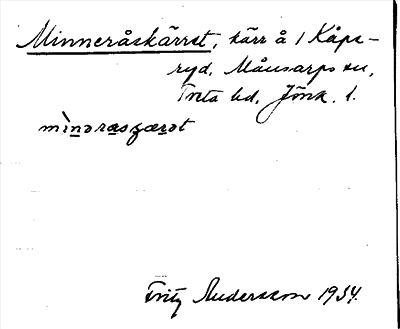 Minneråskärret, kärr å 1 Kåpe-
ryd, Månsarps sn,
Tveta hd, Jönk. l.
mìnərasɕærət
Fritz Andersson 1934.